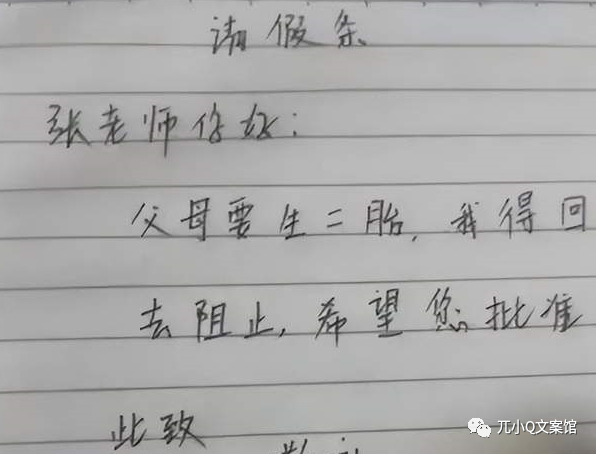 请假条
张老师你好:
父母要生二胎,我得回
去阻止,希望您批准
此致
兀小Q文案馆